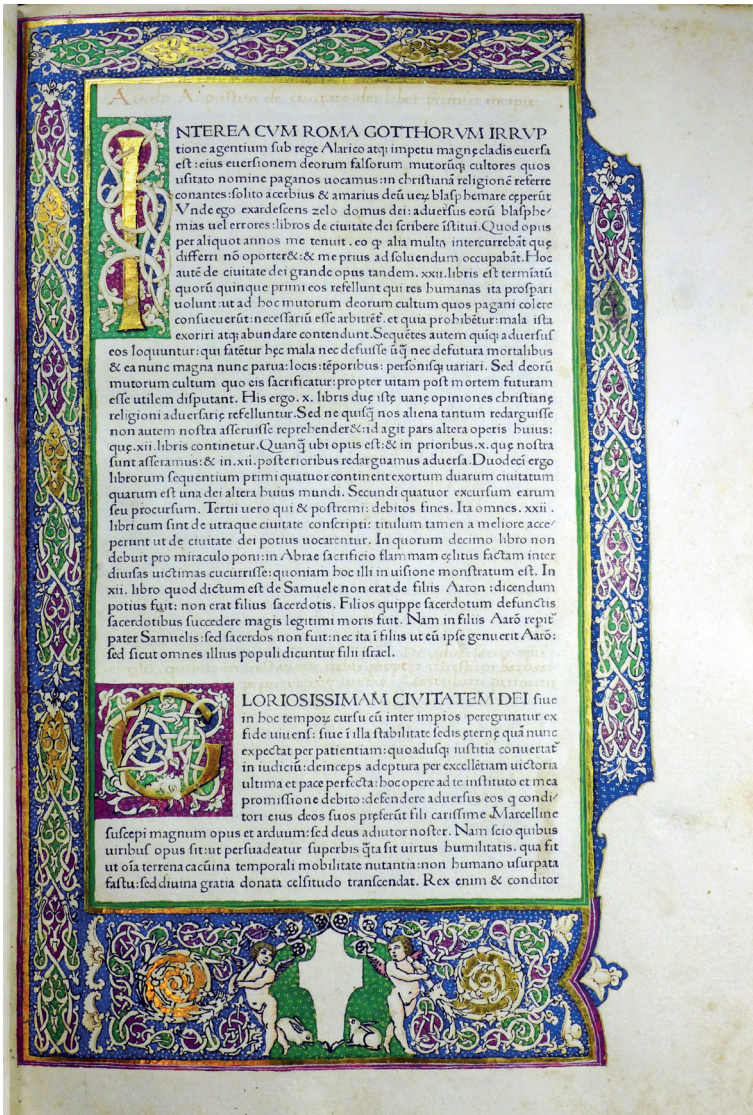 Aurelii Augustini de ciuitate dei liber primus incipit
INTEREA CVM ROMA GOTTHORVM IRRVP
tione agentium sub rege Alarico atq; impetu magnę cladis euersa
est: eius euersionem deorum falsorum mutorūq; cultores quos
usitato nomine paganos uocamus: in christianā religionē referre
conantes: solito acerbius & amarius deū ueꝝ blasphemare cęperūt
Vnde ego exardescens zelo domus dei: aduersus eorū blasphe/
mias uel errores: libros de ciuitate dei scribere īstitui. Quod opus
per aliquot annos me tenuit. eo ꝙ alia multa intercurrebāt quę
differri nō oporter&: & me prius ad soluendum occupabāt. Hoc
autē de ciuitate dei grande opus tandem. xxii. libris est termiatū
quorū quinque primi eos refellunt qui res humanas ita prospari
uolunt: ut ad hoc mutorum deorum cultum quos pagani colere
consueuerūt: necessariū esse arbitrēt̄. et quia prohibētur: mala ista
exoriri atq; abundare contendunt. Sequētes autem quīq; aduersus
eos loquuntur: qui fatētur hęc mala nec defuisse ūq̄ nec defutura mortalibus
& ea nunc magna nunc parua: locis: tēporibus: personisq; uariari. Sed deorū
mutorum cultum quo eis sacrificatur: propter uitam post mortem futuram
esse utilem disputant. His ergo. x. libris duę istę uanę opiniones christianę
religioni aduersarię refelluntur. Sed ne quisq̄ nos aliena tantum redarguisse
non autem nostra asseruisse reprehender&: id agit pars altera operis huius:
quę. xii. libris continetur. Quanq̄ ubi opus est: & in prioribus. x. quę nostra
sunt asseramus: & in. xii. posterioribus redarguamus aduersa. Duodecī ergo
librorum sequentium primi quatuor continent exortum duarum ciuitatum
quarum est una dei altera huius mundi. Secundi quatuor excursum earum
seu procursum. Tertii uero qui & postremi: debitos fines. Ita omnes. xxii.
libri cum sint de utraque ciuitate conscripti: titulum tamen a meliore acce/
perunt ut de ciuitate dei potius uocarentur. In quorum decimo libro non
debuit pro miraculo poni: in Abrae sacrificio flammam cęlitus factam inter
diuisas uictimas cucurrisse: quoniam hoc illi in uisione monstratum est. In
xii. libro quod dictum est de Samuele non erat de filiis Aaron: dicendum
potius fuit: non erat filius sacerdotis. Filios quippe sacerdotum defunctis
sacerdotibus succedere magis legitimi moris fuit. Nam in filiis Aarō repit̄
pater Samuelis: sed sacerdos non fuit: nec ita ī filiis ut eū ipse genuerit Aarō:
sed sicut omnes illius populi dicuntur filii israel.
GLORIOSISSIMAM CIVITATEM DEI siue
in hoc tempoꝝ cursu cū inter impios peregrinatur ex
fide uiuens: siue ī illa stabilitate sedis eternę quā nunc
expectat per patientiam: quoadusq; iustitia conuertat̄
in iudiciū: deinceps adeptura per excellētiam uictoria
ultima et pace perfecta: hoc opere ad te instituto et mea
promissione debito: defendere aduersus eos q condi/
tori eius deos suos pręferūt fili carissime Marcelline
suscepi magnum opus et arduum: sed deus adiutor noster. Nam scio quibus
uiribus opus sit: ut persuadeatur superbis q̄ta sit uirtus humilitatis. qua fit
ut oīa terrena cacūina temporali mobilitate nutantia: non humano usurpata
fastu: sed diuina gratia donata celsitudo transcendat. Rex enim & conditor